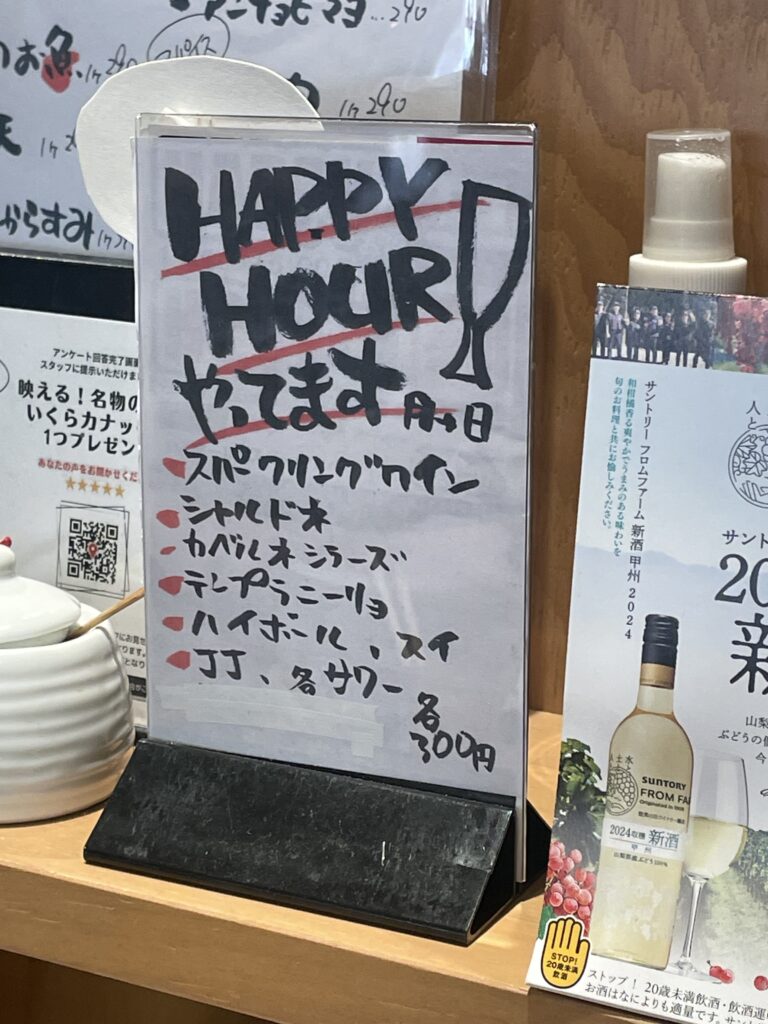 アンチョビマヨ...290
のお魚 1ヶ290
スパイス
1ヶ290
天 1ヶ2
からすみ 1ヶ
HAPPY
HOUR
やってます 月〜日
スパークリングワイン
シャルドネ
カベルネシラーズ
テンプラニーリョ
ハイボール、スイ
JJ、各サワー
各
300円
アンケート回答完了画
スタッフに提示いただけま
映える！名物の
いくらカナッ
1つプレゼン
あなたの声をお聞かせくだ
★★★★★
サントリー フロムファーム 新酒 甲州 2024
和柑橘香る爽やかでうまみのある味わいを
旬のお料理と共にお愉しみください。
サント
20
新
山梨
ぶどうの個
今
人 土 水
SUNTORY
FROM FA
Originated in 1909
2024収穫 新酒
甲州
山梨県産ぶどう100%
STOP!
20歳未満
飲酒
ストップ! 20歳未満飲酒・飲酒運
お酒はなによりも適量です。サント